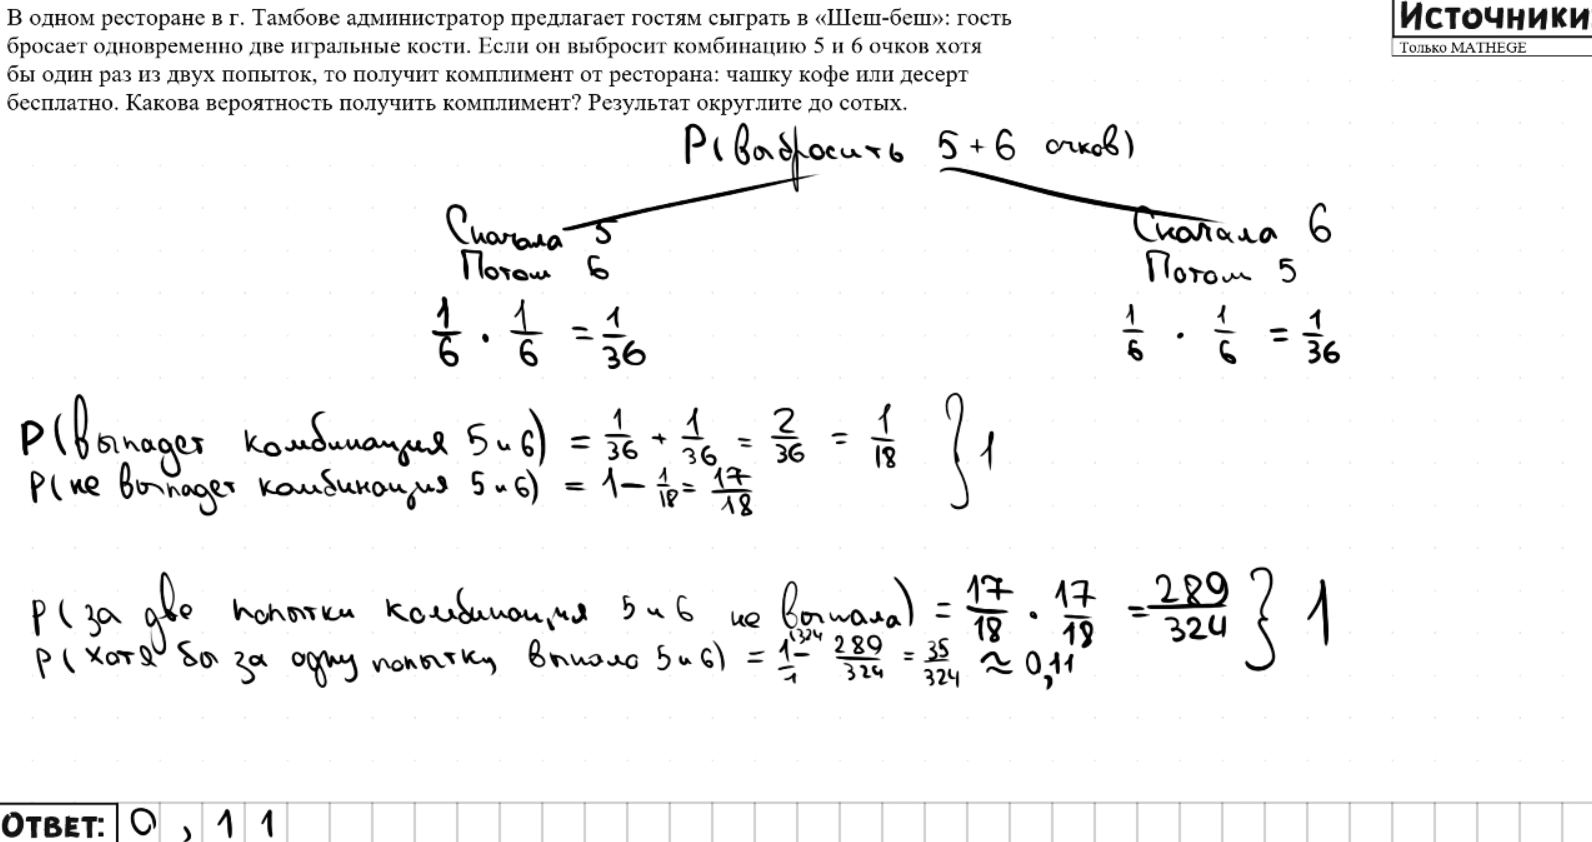 В одном ресторане в г. Тамбове администратор предлагает гостям сыграть в «Шеш-беш»: гость
бросает одновременно две игральные кости. Если он выбросит комбинацию 5 и 6 очков хотя
бы один раз из двух попыток, то получит комплимент от ресторана: чашку кофе или десерт
бесплатно. Какова вероятность получить комплимент? Результат округлите до сотых.
Источники
Только MATHEGE
P(выбросить 5+6 очков)
Сначала 5
Потом 6
1/6 · 1/6 = 1/36
Сначала 6
Потом 5
1/6 · 1/6 = 1/36
P(выпадет комбинация 5 и 6) = 1/36 + 1/36 = 2/36 = 1/18 } 1
P(не выпадет комбинация 5 и 6) = 1 - 1/18 = 17/18
P(за две попытки комбинация 5 и 6 не выпала) = 17/18 · 17/18 = 289/324 } 1
P(хотя бы за одну попытку выпало 5 и 6) = 1/1 (324 - 289/324 = 35/324 ≈ 0,11
ОТВЕТ: 0,11